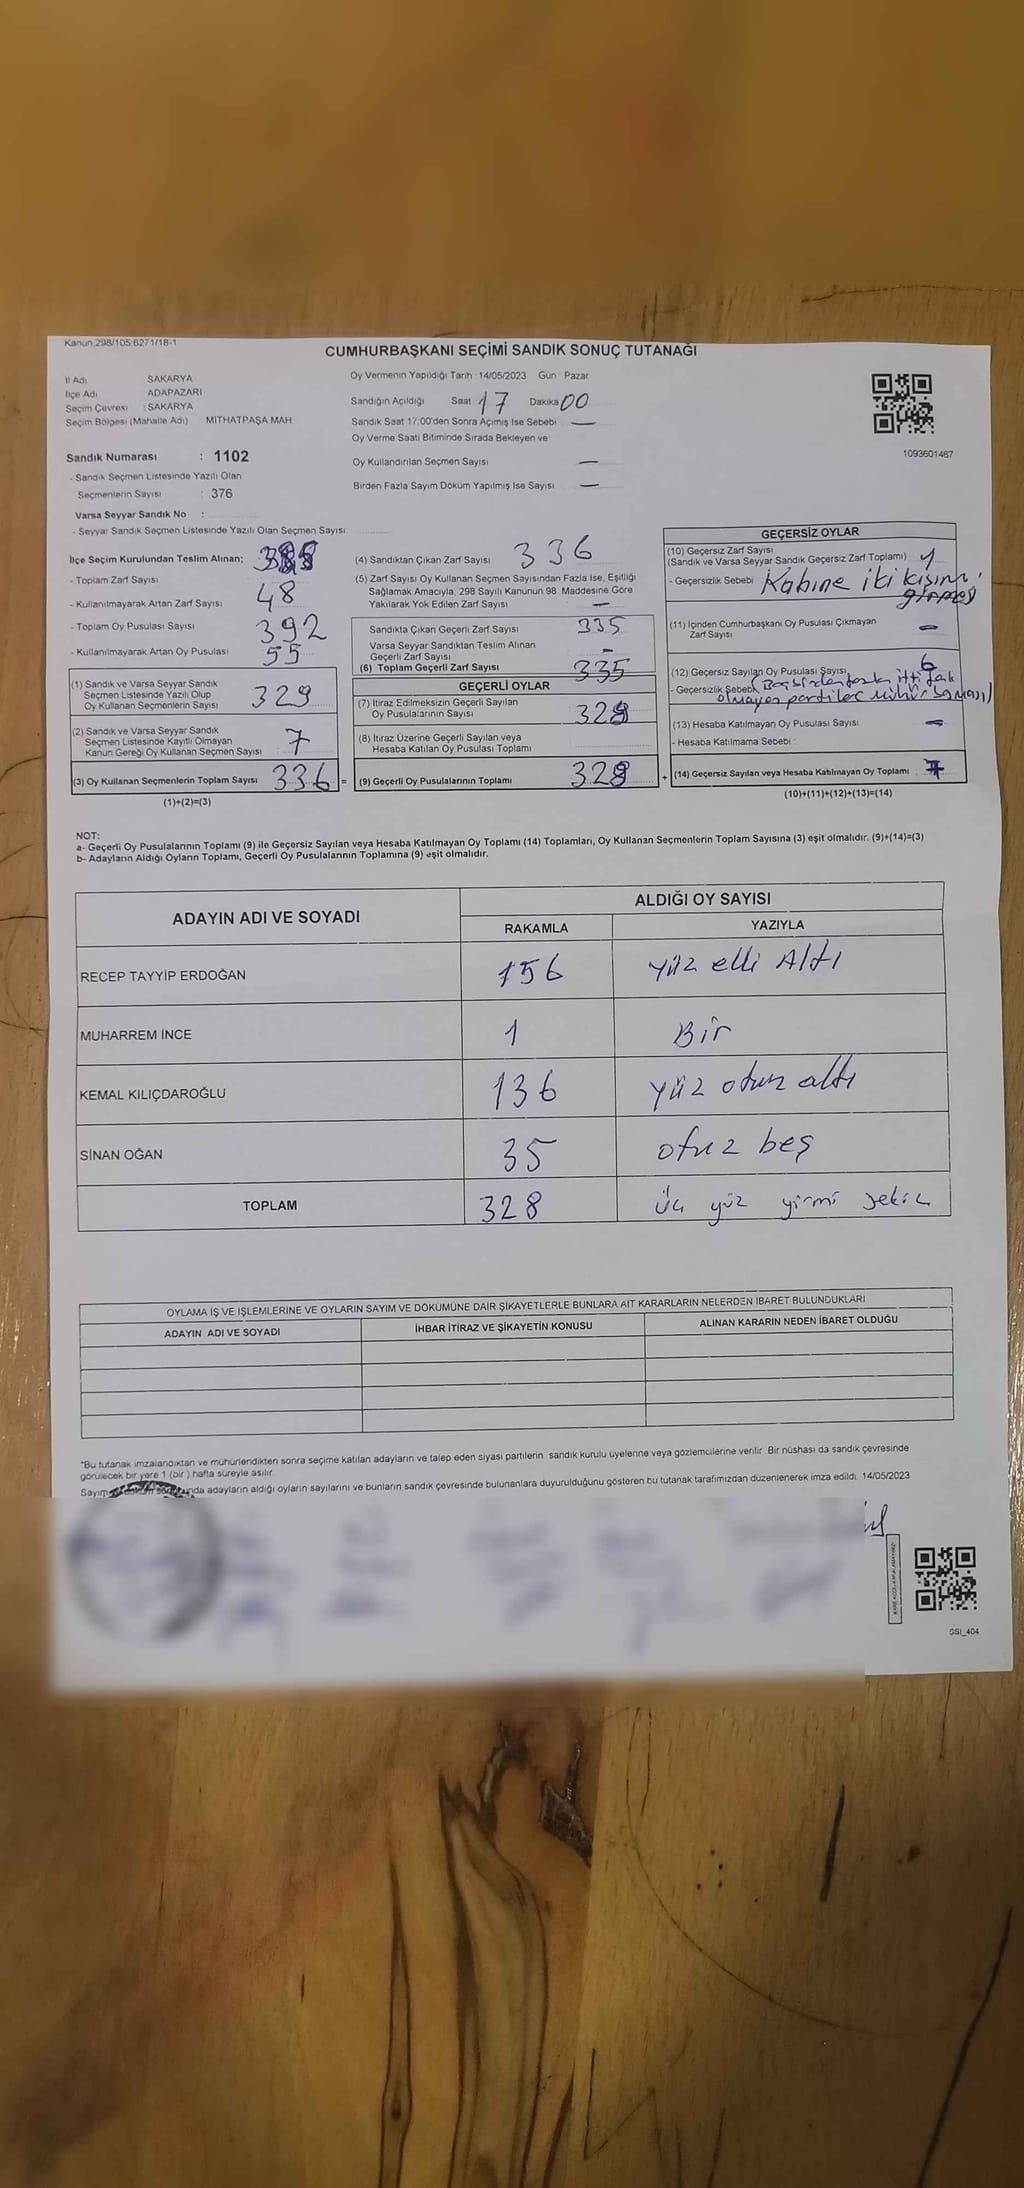 Kanun 298/105 6271/18-1
CUMHURBAŞKANI SEÇİMİ SANDIK SONUÇ TUTANAĞI
İl Adı SAKARYA
İlçe Adı ADAPAZARI
Seçim Çevresi : SAKARYA
Seçim Bölgesi (Mahalle Adı) MİTHATPAŞA MAH
Sandık Numarası : 1102
- Sandık Seçmen Listesinde Yazılı Olan
Seçmenlerin Sayısı : 376
Varsa Seyyar Sandık No :
- Seyyar Sandık Seçmen Listesinde Yazılı Olan Seçmen Sayısı
Oy Vermenin Yapıldığı Tarih :14/05/2023 Gün Pazar
Sandığın Açıldığı Saat 17 Dakika 00
Sandık Saat 17:00'den Sonra Açımış İse Sebebi —
Oy Verme Saati Bitiminde Sırada Bekleyen ve
Oy Kullandırılan Seçmen Sayısı —
Birden Fazla Sayım Döküm Yapılmış İse Sayısı —
1093601467
İlçe Seçim Kurulundan Teslim Alınan;
- Toplam Zarf Sayısı
- Kullanılmayarak Artan Zarf Sayısı 48
- Toplam Oy Pusulası Sayısı 392
- Kullanılmayarak Artan Oy Pusulası 55
(1) Sandık ve Varsa Seyyar Sandık
Seçmen Listesinde Yazılı Olup
Oy Kullanan Seçmenlerin Sayısı 329
(2) Sandık ve Varsa Seyyar Sandık
Seçmen Listesinde Kayıtlı Olmayan
Kanun Gereği Oy Kullanan Seçmen Sayısı 7
(3) Oy Kullanan Seçmenlerin Toplam Sayısı 336 =
(1)+(2)=(3)
(4) Sandıktan Çıkan Zarf Sayısı 336
(5) Zarf Sayısı Oy Kullanan Seçmen Sayısından Fazla İse, Eşitliği
Sağlamak Amacıyla, 298 Sayılı Kanunun 98. Maddesine Göre
Yakılarak Yok Edilen Zarf Sayısı —
Sandıkta Çıkan Geçerli Zarf Sayısı 335
Varsa Seyyar Sandıktan Teslim Alınan
Geçerli Zarf Sayısı —
(6) Toplam Geçerli Zarf Sayısı 335
GEÇERLİ OYLAR
(7) İtiraz Edilmeksizin Geçerli Sayılan
Oy Pusulalarının Sayısı 328
(8) İtiraz Üzerine Geçerli Sayılan veya
Hesaba Katılan Oy Pusulası Toplamı
(9) Geçerli Oy Pusulalarının Toplamı 328 +
GEÇERSİZ OYLAR
(10) Geçersiz Zarf Sayısı
(Sandık ve Varsa Seyyar Sandık Geçersiz Zarf Toplamı) 1
- Geçersizlik Sebebi Kabine iki kişinin
girmesi
(11) İçinden Cumhurbaşkanı Oy Pusulası Çıkmayan
Zarf Sayısı —
(12) Geçersiz Sayılan Oy Pusulası Sayısı 6
- Geçersizlik Sebebi (Bir'den fazla ittifak
olmayan partiler mühür basması)
(13) Hesaba Katılmayan Oy Pusulası Sayısı —
- Hesaba Katılmama Sebebi :
(14) Geçersiz Sayılan veya Hesaba Katılmayan Oy Toplamı 7
(10)+(11)+(12)+(13)=(14)
NOT:
a- Geçerli Oy Pusulalarının Toplamı (9) ile Geçersiz Sayılan veya Hesaba Katılmayan Oy Toplamı (14) Toplamları, Oy Kullanan Seçmenlerin Toplam Sayısına (3) eşit olmalıdır. (9)+(14)=(3)
b- Adayların Aldığı Oyların Toplamı, Geçerli Oy Pusulalarının Toplamına (9) eşit olmalıdır.
ADAYIN ADI VE SOYADI
ALDIĞI OY SAYISI
RAKAMLA YAZIYLA
RECEP TAYYİP ERDOĞAN 156 yüz elli Altı
MUHARREM İNCE 1 Bir
KEMAL KILIÇDAROĞLU 136 yüz otuz altı
SİNAN OĞAN 35 otuz beş
TOPLAM 328 üç yüz yirmi sekiz
OYLAMA İŞ VE İŞLEMLERİNE VE OYLARIN SAYIM VE DÖKÜMÜNE DAİR ŞİKAYETLERLE BUNLARA AİT KARARLARIN NELERDEN İBARET BULUNDUKLARI
ADAYIN ADI VE SOYADI İHBAR İTİRAZ VE ŞİKAYETİN KONUSU ALINAN KARARIN NEDEN İBARET OLDUĞU
"Bu tutanak imzalandıktan ve mühürlendikten sonra seçime katılan adayların ve talep eden siyasi partilerin sandık kurulu üyelerine veya gözlemcilerine verilir. Bir nüshası da sandık çevresinde
görülecek bir yere 1 (bir ) hafta süreyle asılır.
Sayım adayların aldığı oyların sayılarını ve bunların sandık çevresinde bulunanlara duyurulduğunu gösteren bu tutanak tarafımızdan düzenlenerek imza edildi. 14/05/2023
SSI_404